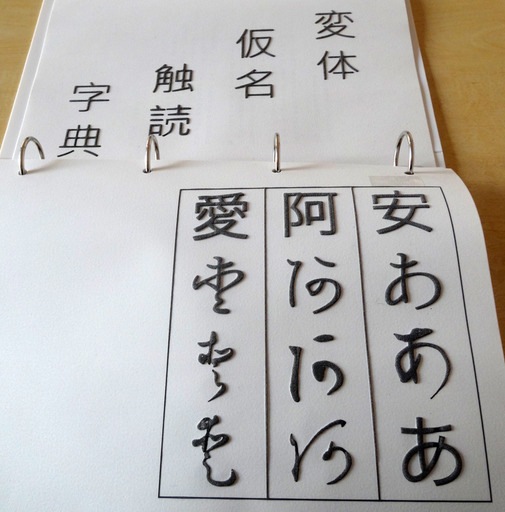 変体
仮名
触読
字典
安
あ
あ
あ
阿
愛